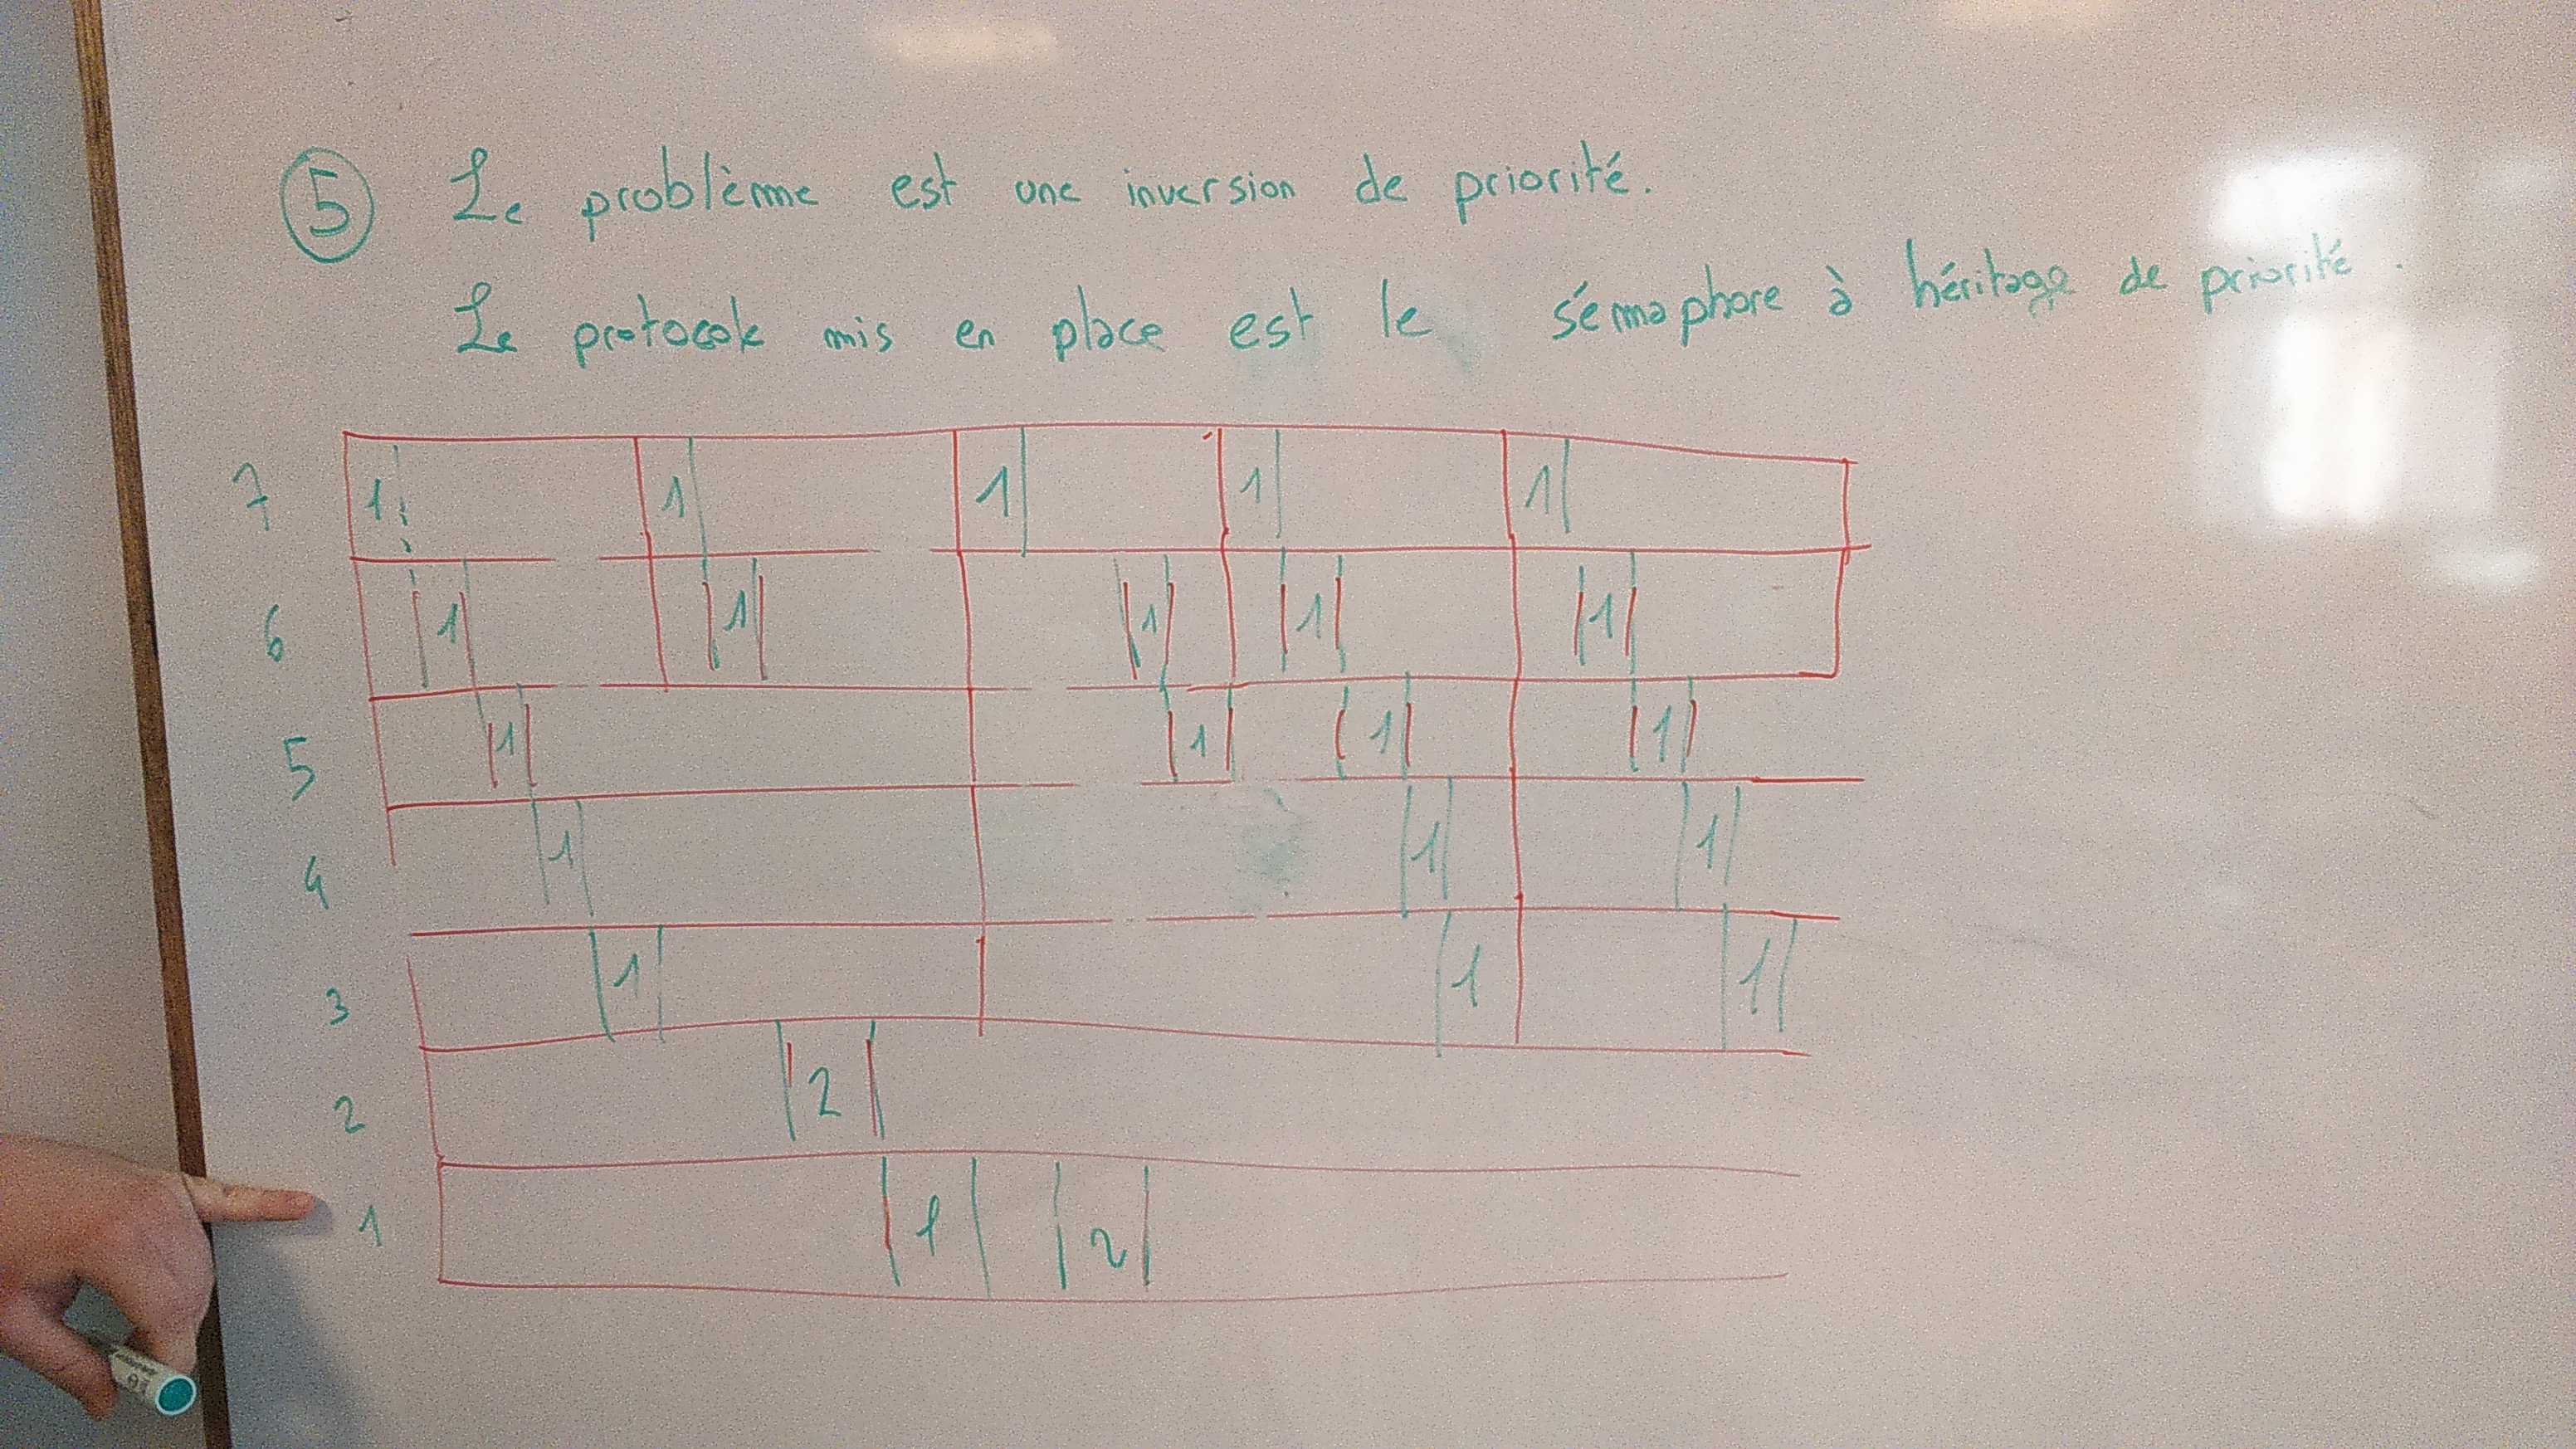 ⑤ Le problème est une inversion de priorité.
Le protocole mis en place est le sémaphore à héritage de priorité.
7 1 1 1 1 1
6 1 1 1 1 1
5 1 1 1 1
4 1 1 1
3 1 1 1
2 2
1 1 2